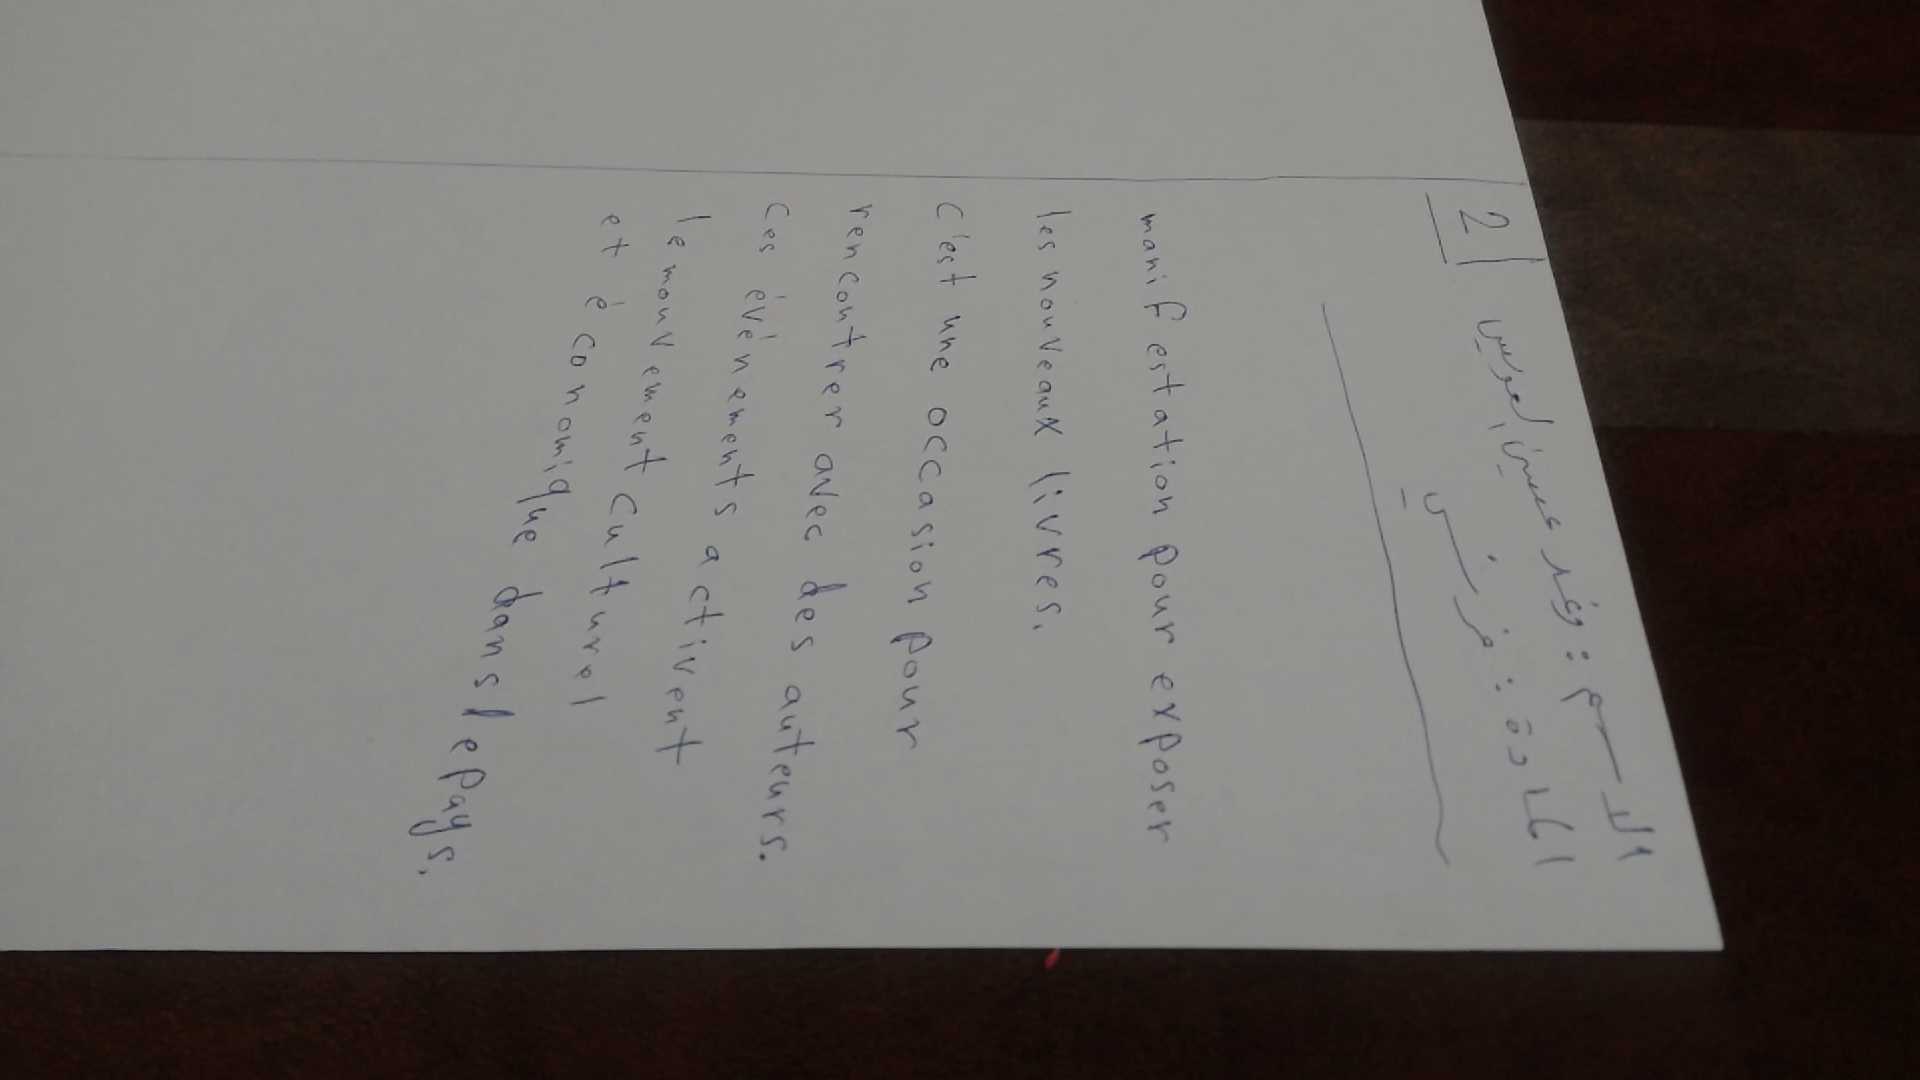 2
الاسم : وغد عيسى لعويس
المادة : فرنسي
manifestation pour exposer
les nouveaux livres.
C'est une occasion pour
rencontrer avec des auteurs.
Ces événements activent
le mouvement culturel
et économique dans le pays.